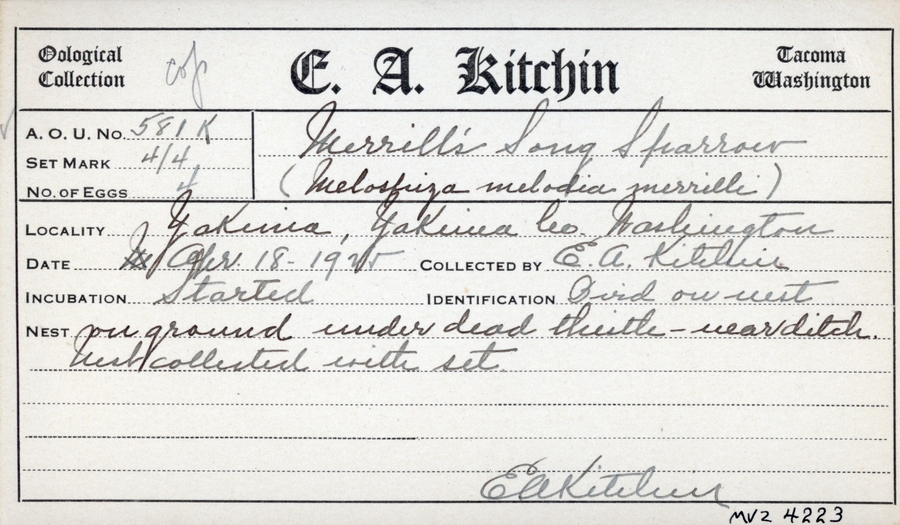 Oological Collection cop E. A. Kitchin Tacoma Washington
A. O. U. No. 581 K
Merrill's Song Sparrow
SET MARK 4/4
No. OF EGGS 4
(Melospiza melodia merrilli)
LOCALITY Yakima, Yakima Co. Washington
DATE Apr. 18- 1925 COLLECTED BY E. A. Kitchin
INCUBATION Started IDENTIFICATION Bird on nest
NEST on ground under dead thistle - near ditch.
Nest collected with set
EAKitchin
MVZ 4223